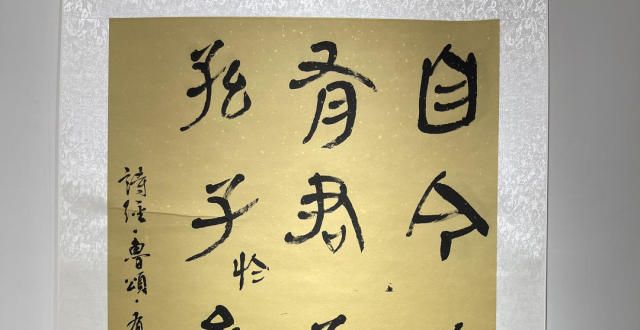 自今
有君
孫子於
詩經·魯頌·有